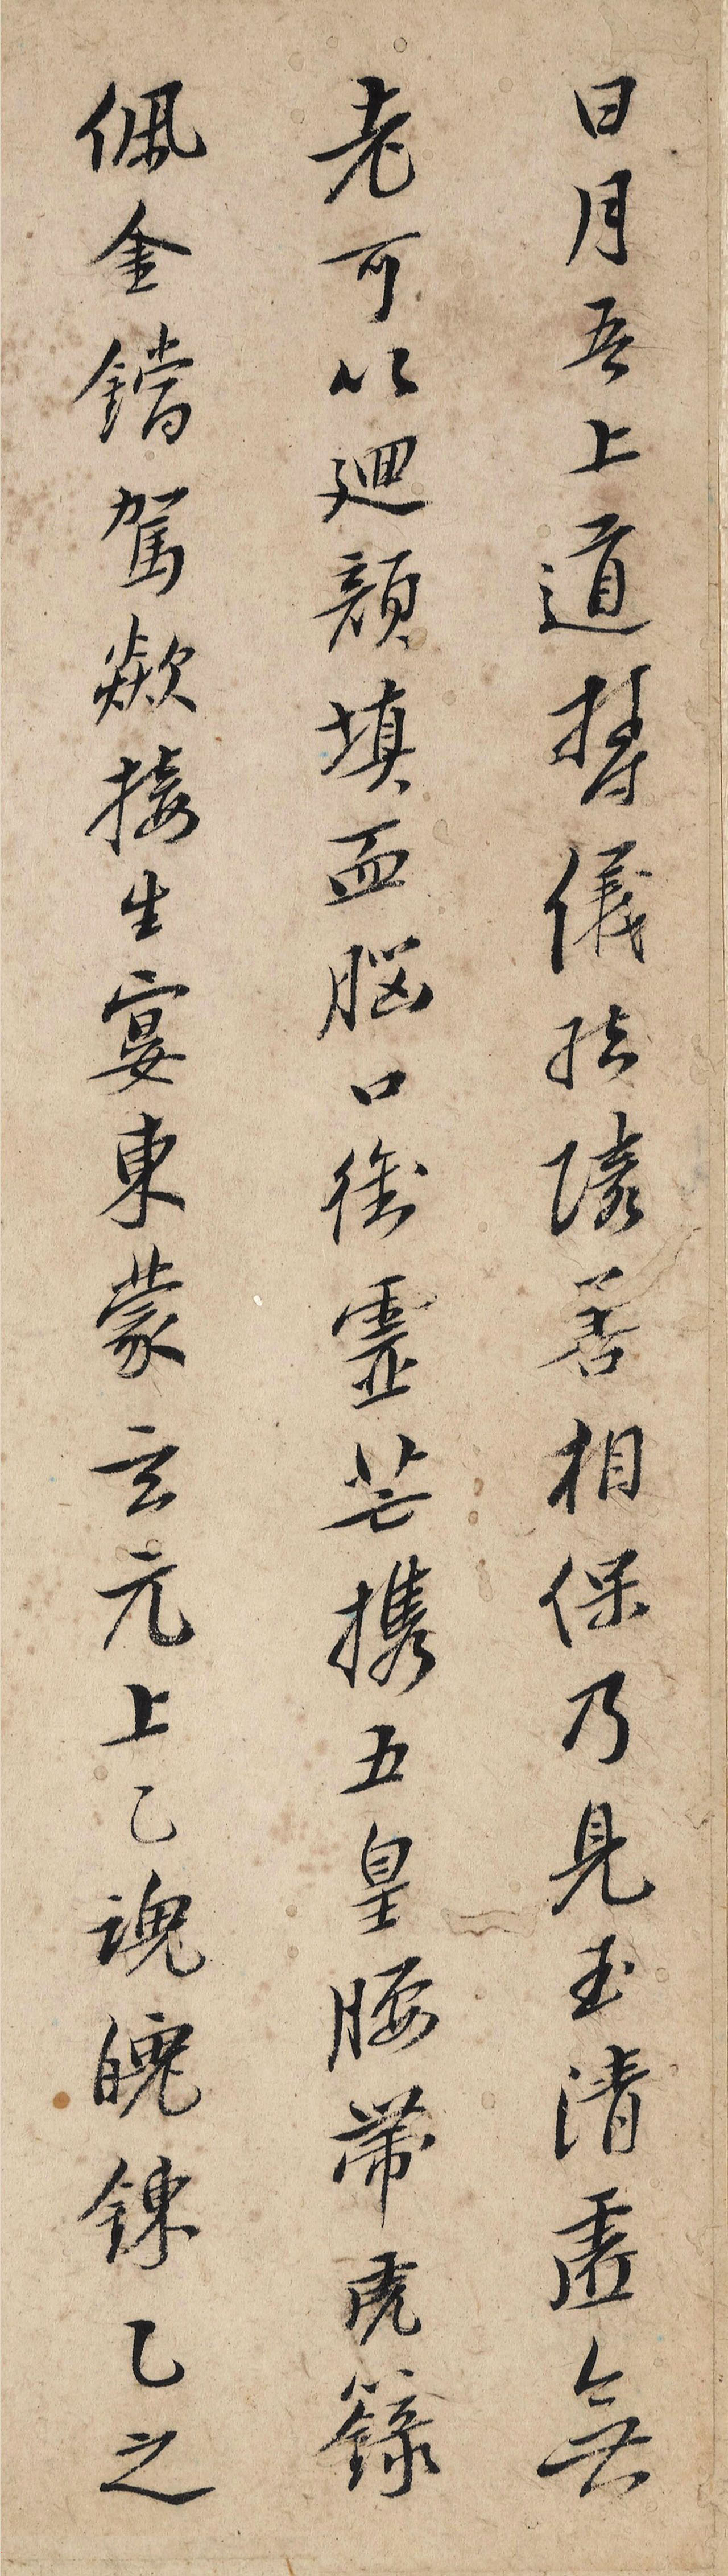 日月吾上道鬱儀結隣善相保乃見玉清虛無
老可以迴顏填血腦口銜靈芒携五皇腰帶虎籙
佩金鐺駕欻接生宴東蒙玄元上乙魂魄鍊乙之